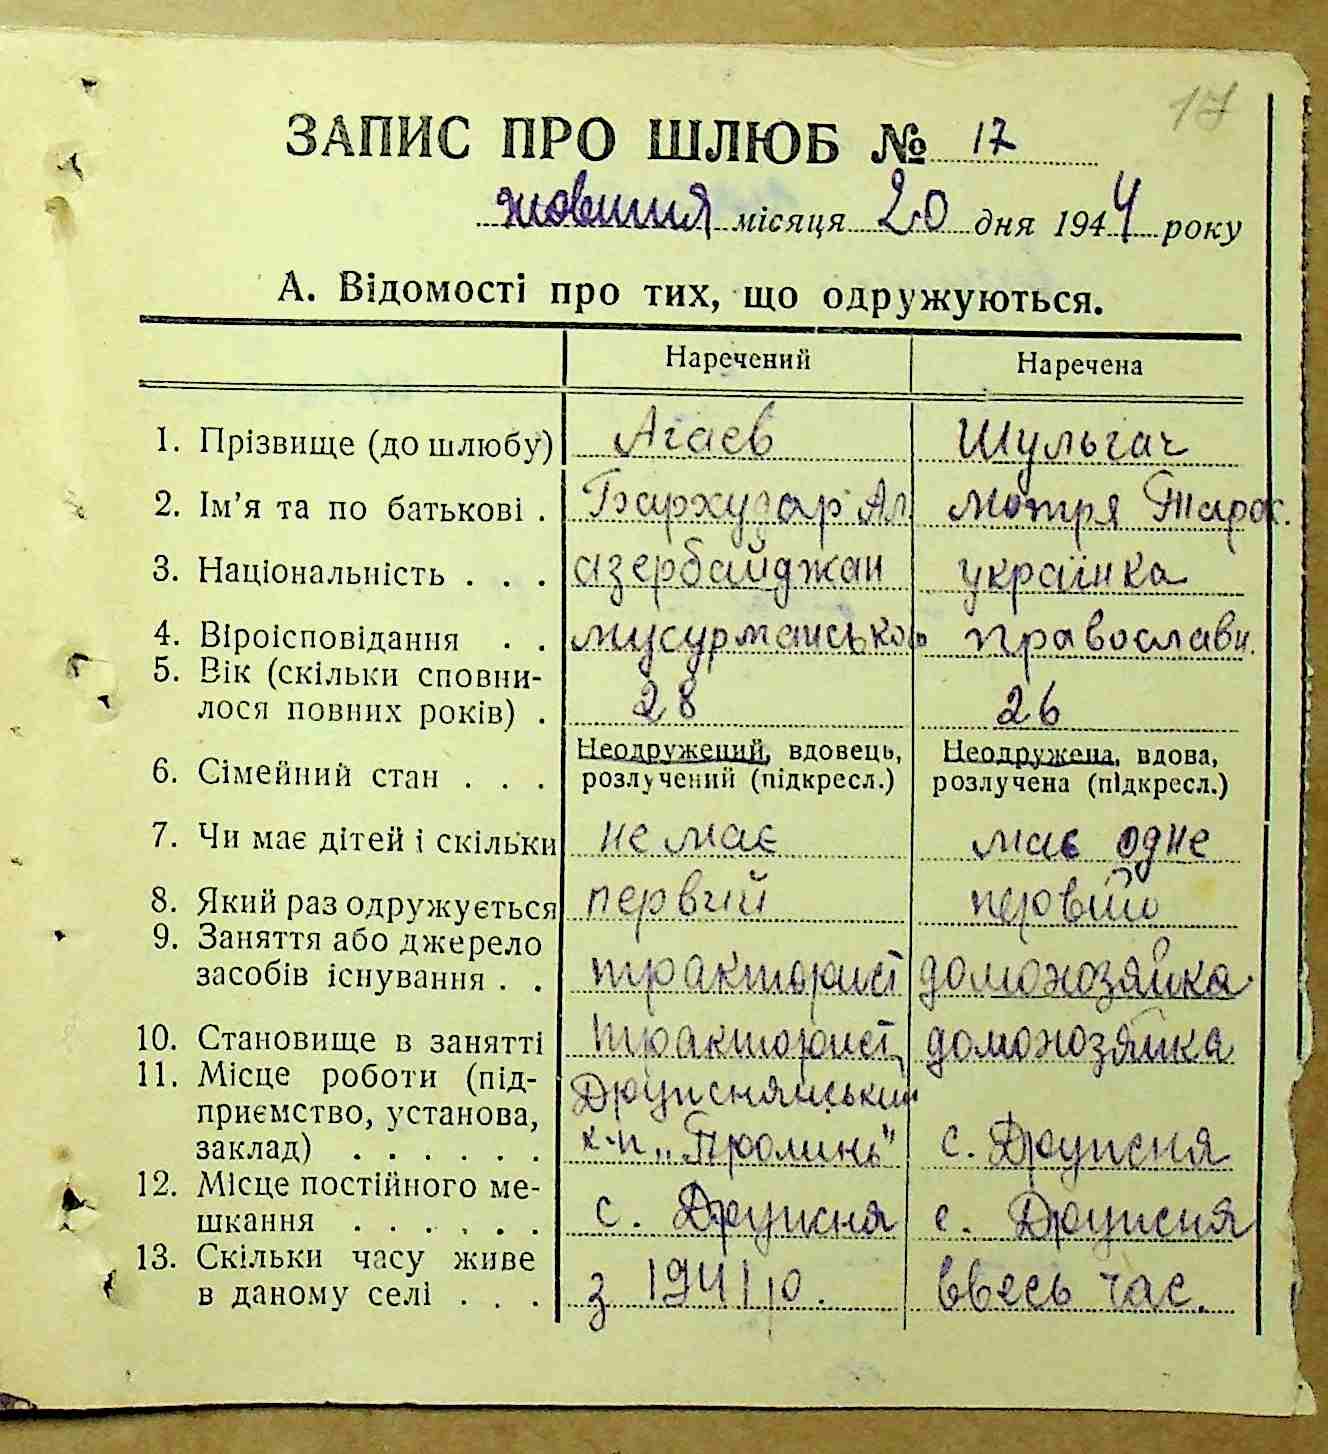 17
ЗАПИС ПРО ШЛЮБ № 17
жовтня місяця 20 дня 1944 року
А. Відомості про тих, що одружуються.
Наречений Наречена
1. Прізвище (до шлюбу) Агаєв Шульгач
2. Ім'я та по батькові . Бархудар Ал Мотря Тарас.
3. Національність . . . азербайджан українка
4. Віроісповідання . . мусурманського православн.
5. Вік (скільки сповни-
лося повних років) . 28 26
6. Сімейний стан . . . Неодружений, вдовець, розлучений (підкресл.) Неодружена, вдова, розлучена (підкресл.)
7. Чи має дітей і скільки не має має одне
8. Який раз одружується первий первий
9. Заняття або джерело
засобів існування . . тракторист домохозяйка
10. Становище в занятті тракторист домохозяйка
11. Місце роботи (під-
приємство, установа,
заклад) . . . . . .
с. 
12. Місце постійного ме-
шкання . . . . . . с. с.
13. Скільки часу живе
в даному селі . . . з 1941 р. ввесь час.